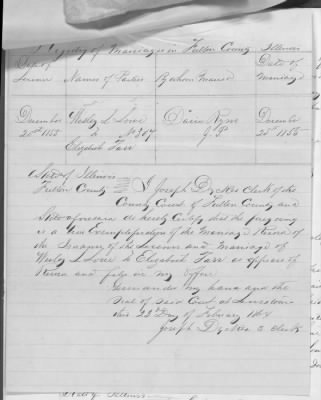 Registry of Marriages in Fulton County Illinois
Date of
License Names of Parties By whom Married Date of
Marriage
December
20th 1855 Wesly S Lowe
& No 307
Elizabeth Farr
J P.
December
25th 1855
State of Illinois
Fulton County I Joseph Dyckes Clerk of the
County Court of Fulton County and
State aforesaid do hereby Certify that the foregoing
is a true Exemplification of the Marriage Record of
the Issuing of the License and Marriage of
Wesly S Lowe to Elizabeth Farr as appears of
Record and file in my office
Hereunder my hand and the
Seal of said Court at Lewistown
this 22d Day of February 1864
Joseph Dyckes Clerk